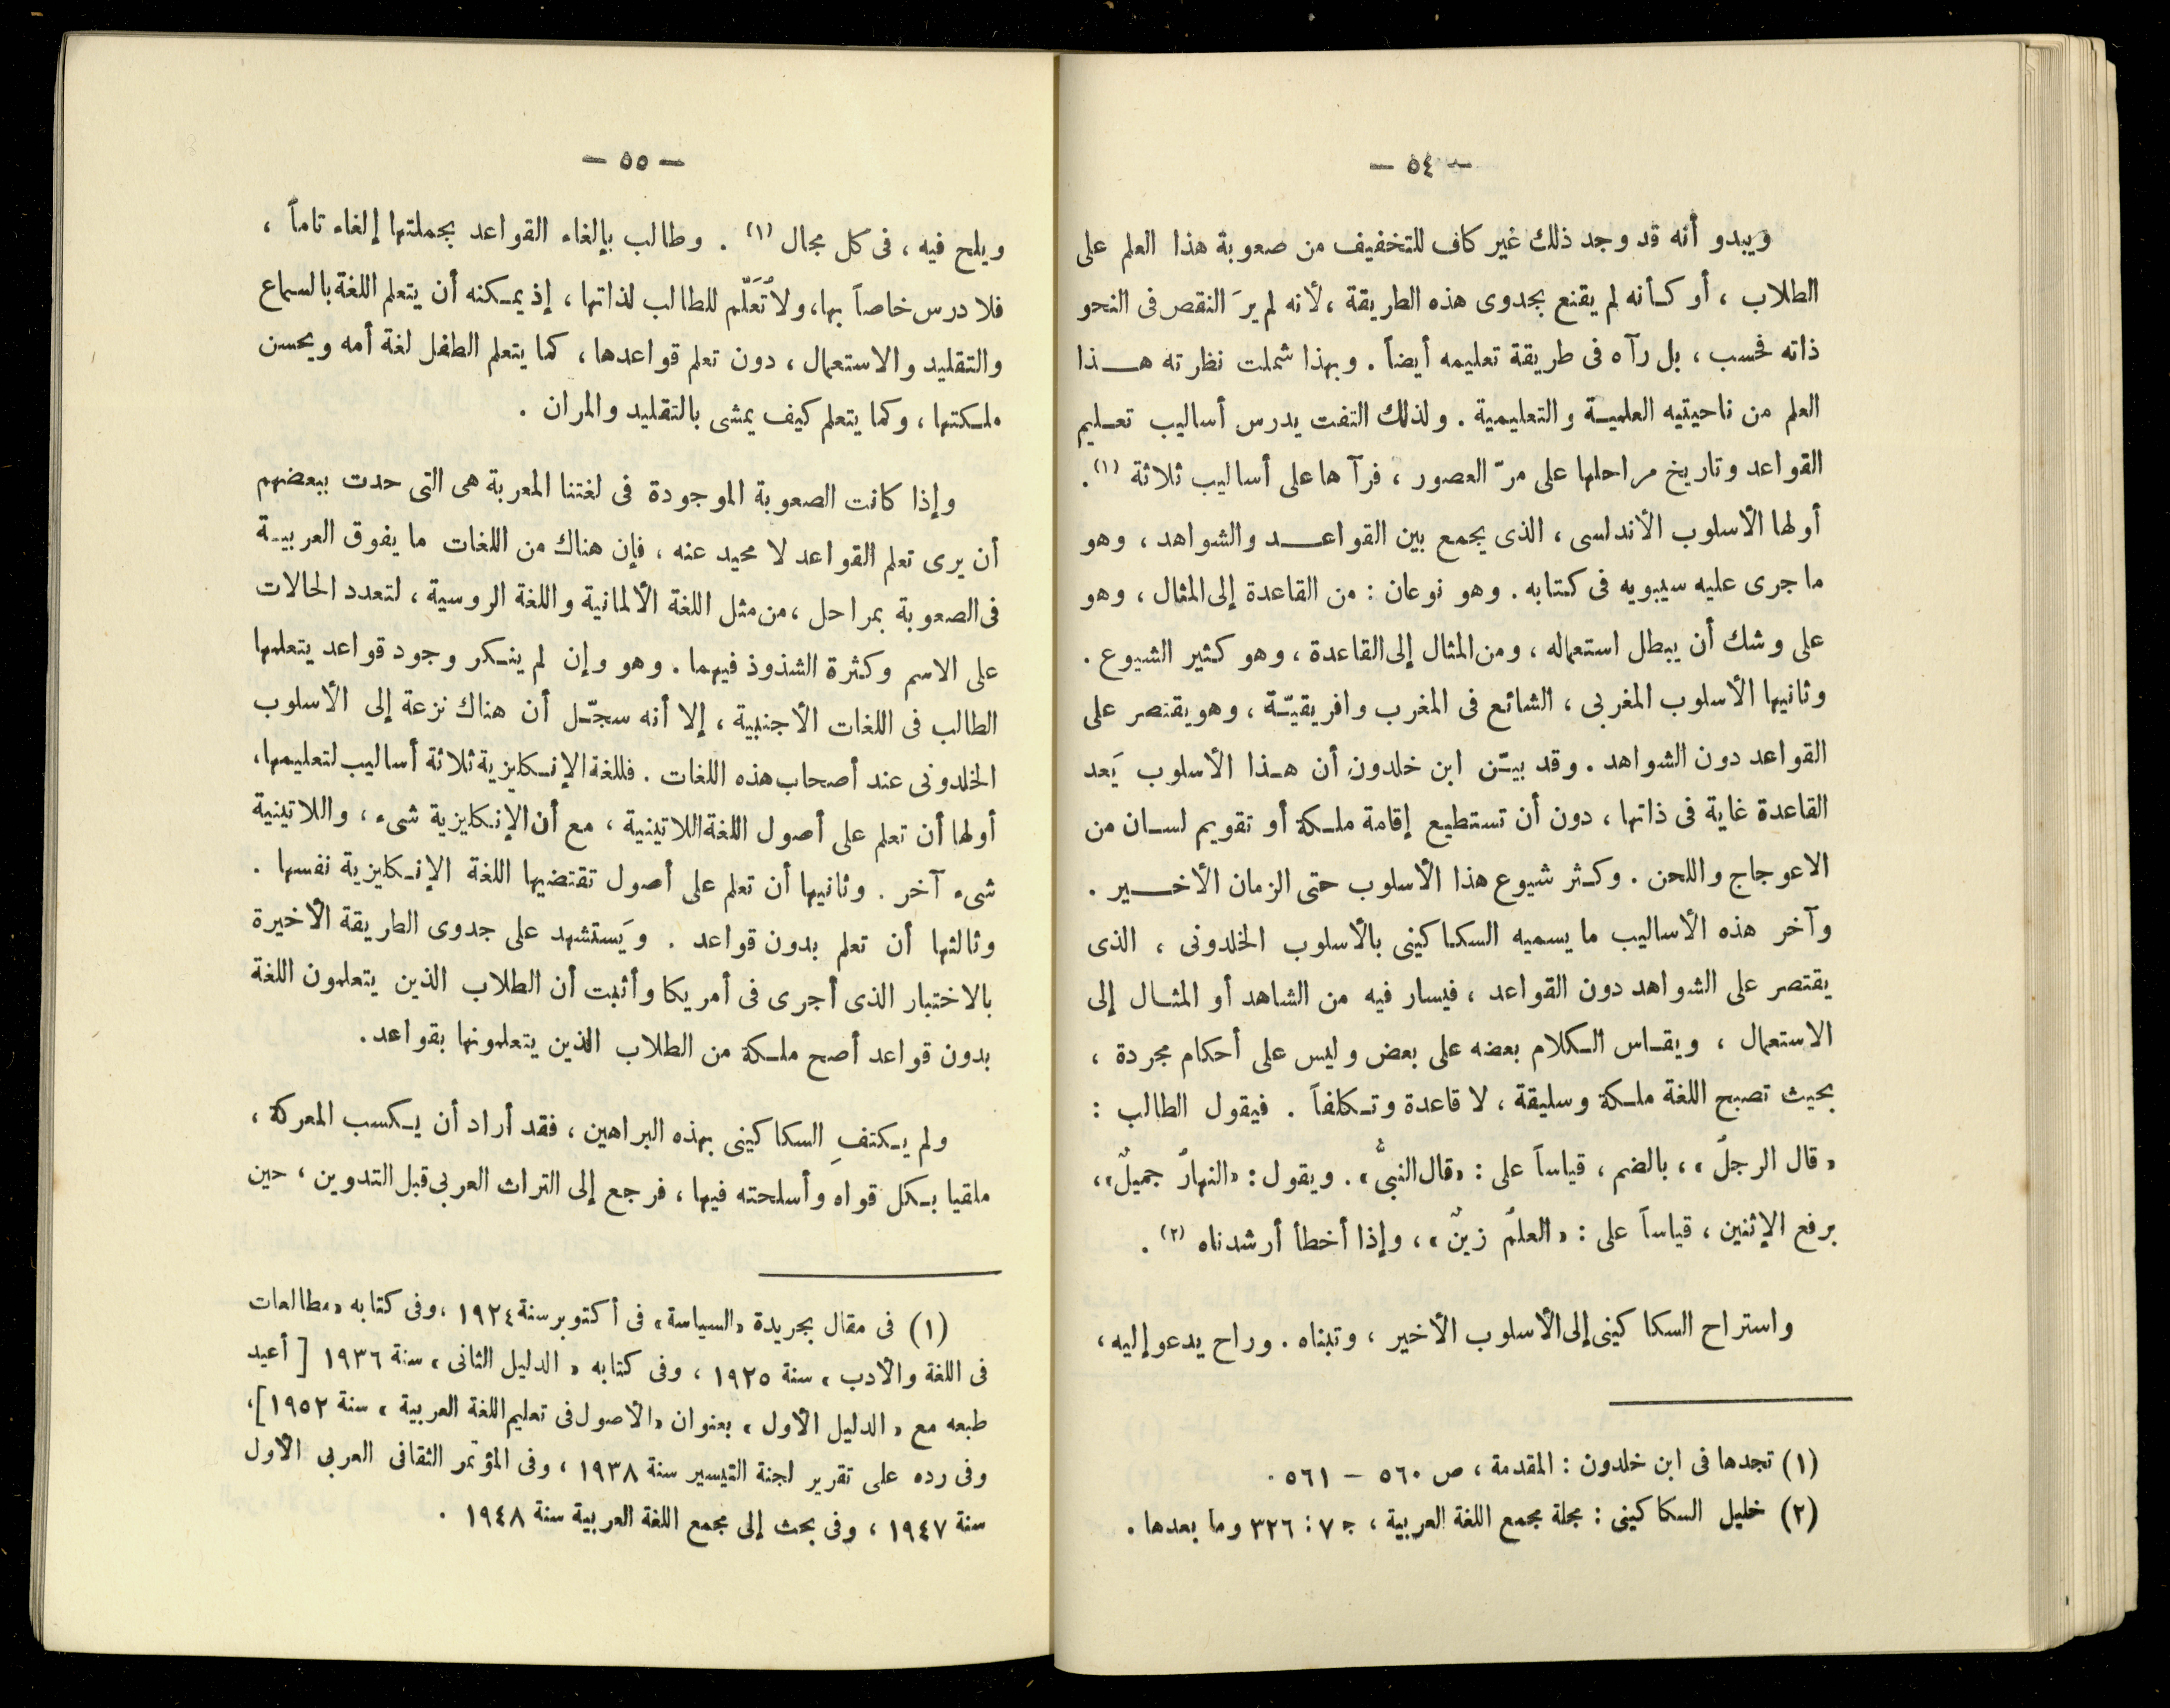 — ٥٤ —
ويبدو أنه قد وجد ذلك غير كاف للتخفيف من صعوبة هذا العلم على
الطلاب ، أو كأنه لم يقنع بجدوى هذه الطريقة ، لأنه لم يرَ النقص فى النحو
ذاته فحسب ، بل رآه فى طريقة تعليمه أيضاً . وبهذا شملت نظرته هذا
العلم من ناحيتيه العلمية والتعليمية . ولذلك التفت يدرس أساليب تعليم
القواعد وتاريخ مراحلها على مرّ العصور ، فرآها على أساليب ثلاثة (١) .
أولها الأسلوب الأندلسى ، الذى يجمع بين القواعد والشواهد ، وهو
ما جرى عليه سيبويه فى كتابه . وهو نوعان : من القاعدة إلى المثال ، وهو
على وشك أن يبطل استعماله ، ومن المثال إلى القاعدة ، وهو كثير الشيوع .
وثانيها الأسلوب المغربى ، الشائع فى المغرب وافريقيّة ، وهو يقتصر على
القواعد دون الشواهد . وقد بيّن ابن خلدون أن هذا الأسلوب يَعد
القاعدة غاية فى ذاتها ، دون أن تستطيع إقامة ملكة أو تقويم لسان من
الاعوجاج واللحن . وكثر شيوع هذا الأسلوب حتى الزمان الأخير .
وآخر هذه الأساليب ما يسميه السكاكينى بالأسلوب الخلدونى ، الذى
يقتصر على الشواهد دون القواعد ، فيسار فيه من الشاهد أو المثال إلى
الاستعمال ، ويقاس الكلام بعضه على بعض وليس على أحكام مجردة ،
بحيث تصبح اللغة ملكة وسليقة ، لا قاعدة وتكلفاً . فيقول الطالب :
« قال الرجلُ » ، بالضم ، قياساً على : « قال النبىُّ » . ويقول : « النهارُ جميلٌ » ،
برفع الإثنين ، قياساً على : « العلمُ زينٌ » ، وإذا أخطأ أرشدناه (٢) .
واستراح السكاكينى إلى الأسلوب الأخير ، وتبناه . وراح يدعو إليه ،
(١) تجدها فى ابن خلدون : المقدمة ، ص ٥٦٠ – ٥٦١ .
(٢) خليل السكاكينى : مجلة مجمع اللغة العربية ، ج ٧ : ٣٢٦ وما بعدها .
— ٥٥ —
ويلح فيه ، فى كل مجال (١) . وطالب بإلغاء القواعد بجملتها إلغاء تاماً ،
فلا درس خاصاً بها ، ولا تُعَلَّم للطالب لذاتها ، إذ يمكنه أن يتعلم اللغة بالسماع
والتقليد والاستعمال ، دون تعلم قواعدها ، كما يتعلم الطفل لغة أمه ويحسن
ملكتها ، وكما يتعلم كيف يمشى بالتقليد والمران .
وإذا كانت الصعوبة الموجودة فى لغتنا المعربة هى التى حدت ببعضهم
أن يرى تعلم القواعد لا محيد عنه ، فإن هناك من اللغات ما يفوق العربية
فى الصعوبة بمراحل ، من مثل اللغة الألمانية واللغة الروسية ، لتعدد الحالات
على الاسم وكثرة الشذوذ فيهما . وهو وإن لم ينكر وجود قواعد يتعلمها
الطالب فى اللغات الأجنبية ، إلا أنه سجّل أن هناك نزعة إلى الأسلوب
الخلدونى عند أصحاب هذه اللغات . فللغة الإنكليزية ثلاثة أساليب لتعليمها ،
أولها أن تعلم على أصول اللغة اللاتينية ، مع أن الإنكليزية شىء ، واللاتينية
شىء آخر . وثانيها أن تعلم على أصول تقتضيها اللغة الإنكليزية نفسها .
وثالثها أن تعلم بدون قواعد . ويَستشهد على جدوى الطريقة الأخيرة
بالاختبار الذى أجرى فى أمريكا وأثبت أن الطلاب الذين يتعلمون اللغة
بدون قواعد أصح ملكة من الطلاب الذين يتعلمونها بقواعد .
ولم يكتفِ السكاكينى بهذه البراهين ، فقد أراد أن يكسب المعركة ،
ملقيا بكل قواه وأسلحته فيها ، فرجع إلى التراث العربى قبل التدوين ، حين
(١) فى مقال بجريدة « السياسة » فى أكتوبر سنة ١٩٢٤ ، وفى كتابه « مطالعات
فى اللغة والأدب » سنة ١٩٢٥ ، وفى كتابه « الدليل الثانى » سنة ١٩٣٦ [ أعيد
طبعه مع « الدليل الأول » بعنوان « الأصول فى تعليم اللغة العربية » سنة ١٩٥٢ ] ،
وفى رده على تقرير لجنة التيسير سنة ١٩٣٨ ، وفى المؤتمر الثقافى العربى الأول
سنة ١٩٤٧ ، وفى بحث إلى مجمع اللغة العربية سنة ١٩٤٨ .